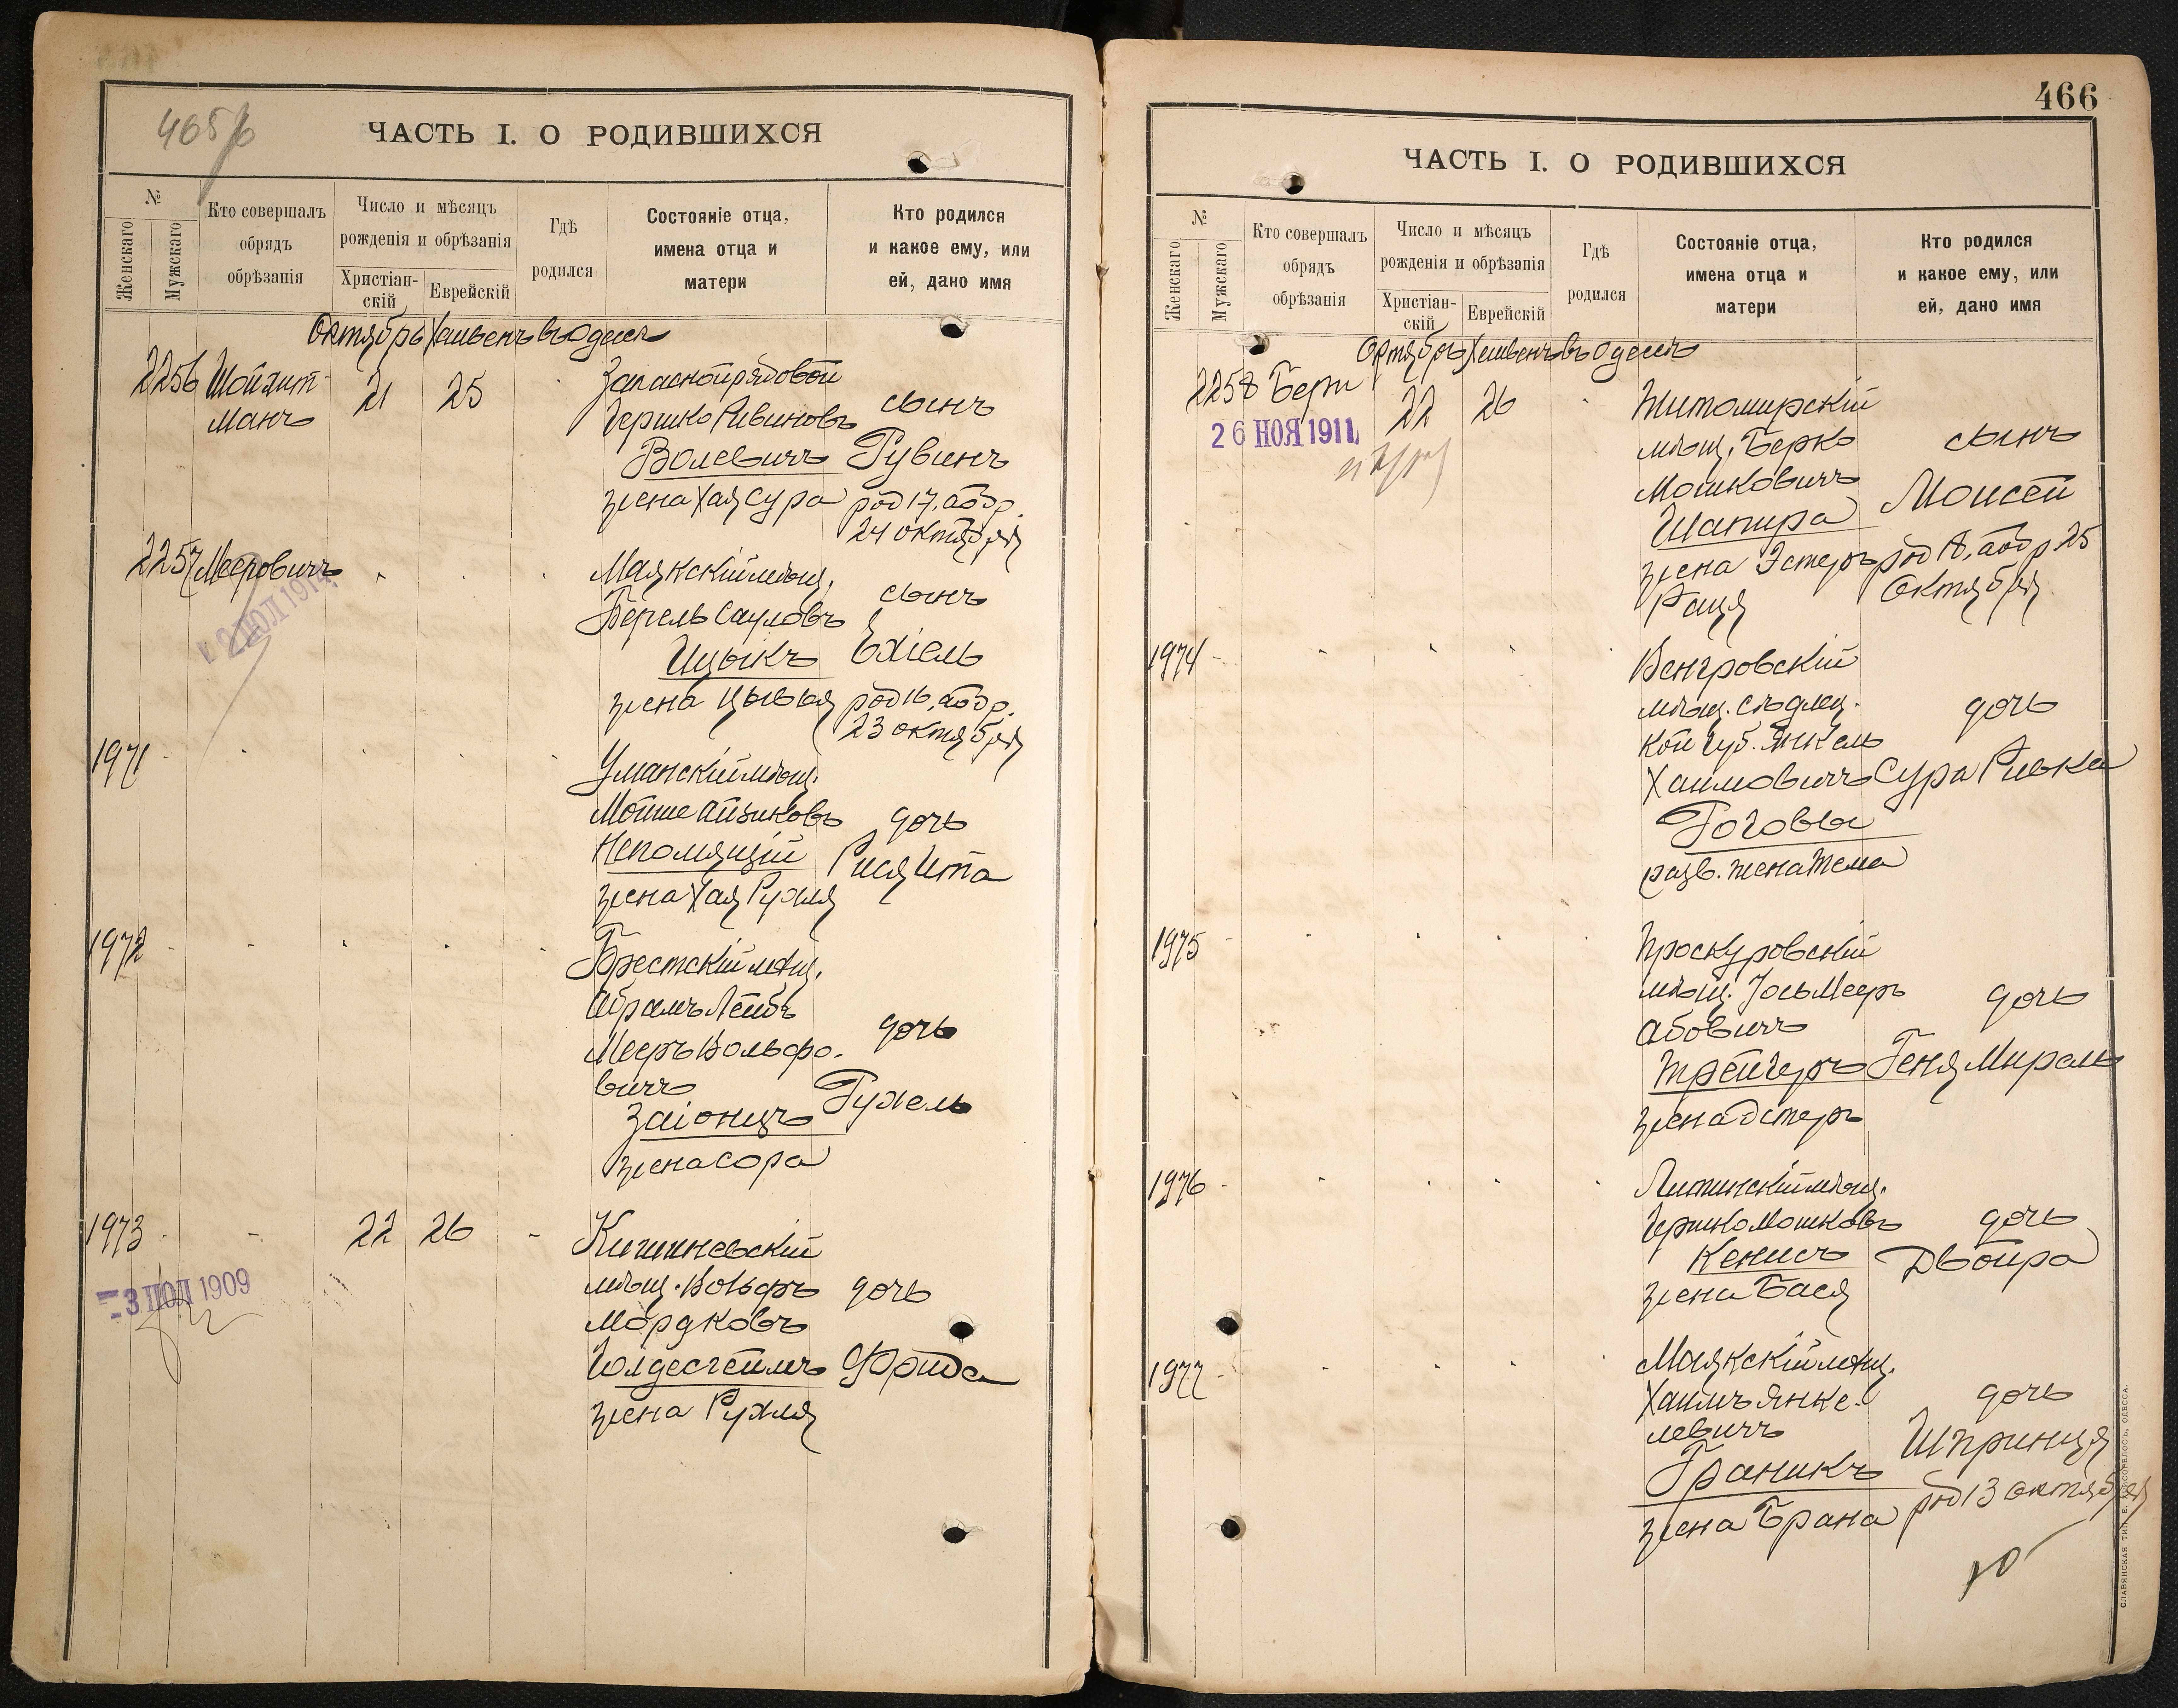 ЧАСТЬ I. О РОДИВШИХСЯ
№
Женскаго
Мужскаго
Кто совершалъ обрядъ обрѣзанія
Число и мѣсяцъ рожденія и обрѣзанія
Христіан-скій
Еврейскій
Гдѣ родился
Состояніе отца, имена отца и матери
Кто родился и какое ему, или ей, дано имя
Октябрь Хешвенъ въ Одессѣ
2256 Шойхит-
манъ
21 25
Запасной рядовой
Гершко Рувиновъ
Волевичъ
жена Хая Сура
сынъ
Рувинъ
род 17, або р.
24 октября
2257 Мееровичъ
Маякскій мѣщ.
Берель Сауловъ
Ицыкъ
жена Цывья
сынъ
Ехіель
род 16, або р.
23 октября
1971
Уманскій мѣщ.
Мойше Айзиковъ
Непомящій
жена Хая Рухля
дочь
Рися Ита
1972
Брестскій мѣщ.
Абрамъ Лейбъ
Мееръ Вольфо-
вичъ
Заіонцъ
жена Сора
дочь
Рухель
1973
-3 ІЮЛ 1909
22 26
Кишиневскій
мѣщ. Вольфъ
Мордковъ
Голдесгеймъ
жена Рухля
дочь
Фрида
466
ЧАСТЬ I. О РОДИВШИХСЯ
№
Женскаго
Мужскаго
Кто совершалъ обрядъ обрѣзанія
Число и мѣсяцъ рожденія и обрѣзанія
Христіан-скій
Еврейскій
Гдѣ родился
Состояніе отца, имена отца и матери
Кто родился и какое ему, или ей, дано имя
Октябрь Хешвенъ въ Одессѣ
2258 Бери
26 НОЯ 1911
22 26
Житомирскій
мѣщ. Берко
Мошковичъ
Шапира
жена Эстеръ
Рация
сынъ
Моисей
род 18, або р 25
Октября
1974
Венгровскій
мѣщ. Сѣдлец-
кой губ. Янкель
Хаимовичъ
Роговы
разв. жена Тема
дочь
Сура Ривка
1975
Проскуровскій
мѣщ. Іось Мееръ
Абовичъ
Трейгеръ
жена Эстеръ
дочь
Геня Мирель
1976
Литинскій мѣщ.
Гершко Мошковъ
Кенисъ
жена Бася
дочь
Двойра
1977
Маякскій мѣщ.
Хаимъ Янке-
левичъ
Граникъ
жена Брана
дочь
Шпринця
род 13 октября
СЛАВЯНСКАЯ ТИП. Е. ХРИСОГЕЛОСЪ, ОДЕССА.